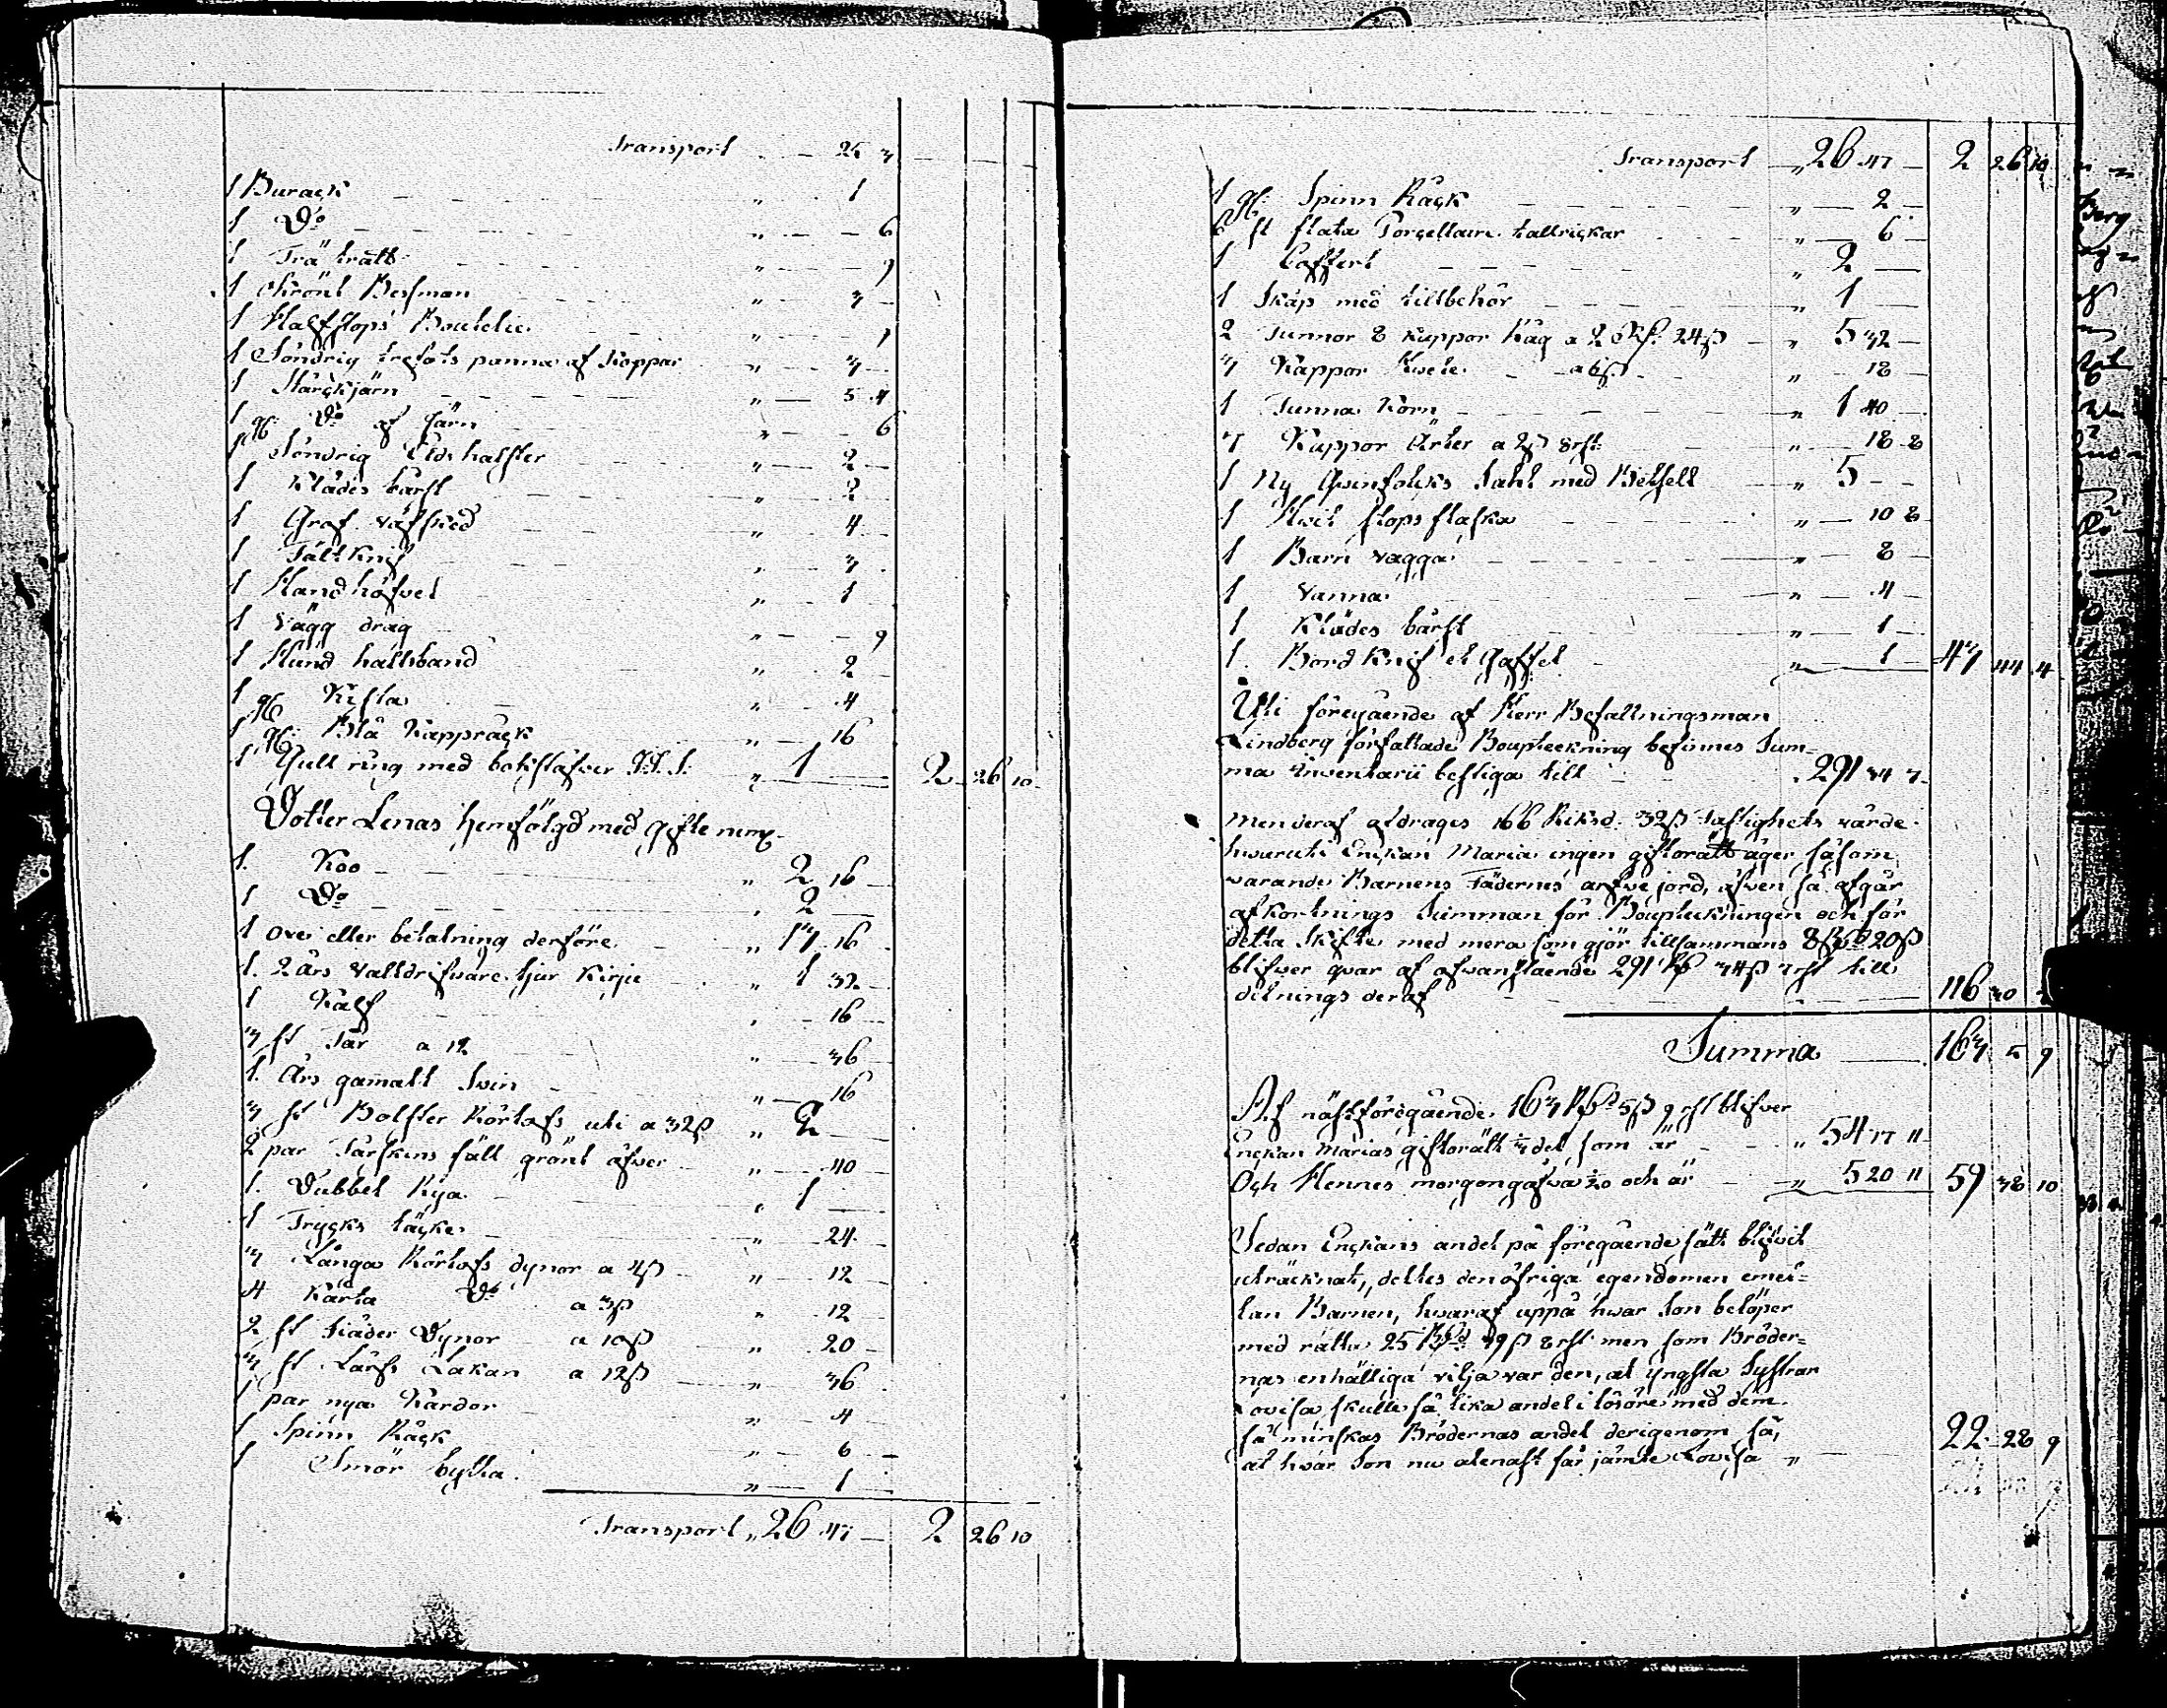 Transport „ — 25 3
1 Burack „ 1
1 Do „ — — 6
1 Trä tratt „ — — 9
1 Krönt Besman „ 3
1 Halfstops Boutelie „ 1
1 Söndrig trefots panna af Koppar „ 3
1 Stärckjärn „ — 5 4
1 gl: Do af Järn „ — — 6
1 Söndrig Elds halster „ 2
1 Klädes bårst „ 2
1 Graf väfsked „ 4
1 Tält Knif „ 3
1 Handhöfvel „ 1
1 Vägg drag „ — — 9
1 Hund halsband „ 2
1 gl: Kista „ 4
1 gl: Blå Kappråck „ 16
1 Gull ring med bokstäfver „ 1 — 2 26 10
Dotter Lenas Hemfölgd med Gifte
1. Koo „ 2 16
1 Do „ 2
1 oxe eller betalning derföre „ 13 16
1. 2 års valldrifvare tjur Kirju „ 1 32
1 Kalf „ 16
3 st Får a 12 „ 36
1. Års gamalt Svin „ 16
3 st Bolster Rörtafs uti a 32ß „ 2
2 par Fårskins fäll grönt öfver „ 40
1. Dubbel Rya „ 1
1 Trycks täcke „ 24
3 Långa Rörtafs dynor a 4ß „ 12
4 Korta Do a 3ß „ 12
2 st fiäder Dynor a 10ß „ 20
3 st Lärfts Lakan a 12ß „ 36
1 par nya Kardor „ 4
1 Spinn Råck „ 6
1 Smör bytta „ 1
Transport „ 26 47 — 2 26 10
Transport „ 26 47 — 2 26 10
1 gl: Spinn Råck „ 2
6 st flata Porcellains tallrickar „ 6
1 Coffert „ 2
1 Skåp med tillbehör „ 1
2 Tunnor 8 kappor Råg a 2 24ß „ 5 32
3 Kappor Hvete a 6ß „ 18
1 Tunna Korn „ 1 40
7 Kappor Ärter a 2ß 8rst „ 18 8
1 Ny Qvinfolcks Sahl med Betsell „ 5
1 Hvit stopsflaska „ 10 8
1 Barn vagga „ 8
1 Vanna „ 4
1 Klädes bårst „ 1
1. Bord Knif et Gaffel „ 1 — 43 44 4
Uti föregående af Herr Befallningsman
Lindberg författade Boupteckning befinnes Sum-
ma Inventarii bestiga till 291 34 3
men deraf afdrages 166 Riksd 32ß Fastighets värde
hvaruti Enckan Maria ingen giftorätt äger såsom
varande Barnens Fädernes arfve jord, äfven så afgår
afkortnings Summan för Boupteckningen och för
detta Skifte med mera som gör tillsammans 8 20ß
blifver qvar af ofvanstående 291 34ß 3rst till
delnings deraf 116 30
Summa — 163 5 9
Af nästföregående 163 5ß 9rst blifver
Enckan Marias giftorätt 1/3 del som är „ 54 17 11
Och Hennes morgongåfva 1/20 och är „ 5 20 11 59 38 10
Sedan Enckans andel på föregående sätt blifvit
uträcknat, deltes den öfriga egendomen emel=
lan Barnen, hvaraf uppå hvar Son belöper
med rätta 25 39ß 8rst men som Bröder=
nas enhälliga vilja var den, at yngsta Systran
Lovisa skulle få lika andel i lösöre med dem
så minskas Brödernas andel derigenom så,
at hvar Son nu alenast får jämte Lovisa „ 22 28 9